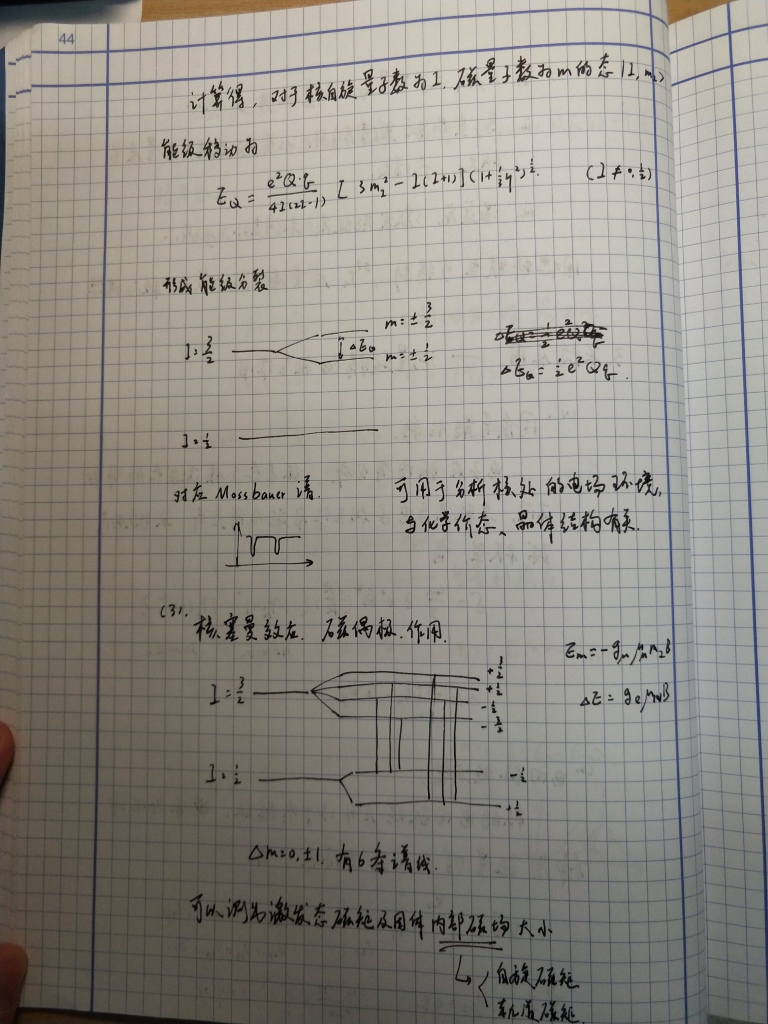 44
计算得, 对于核自旋量子数为I. 磁量子数为m的态 |I, m_z>
能级移动为
E_Q = \frac{e²Q·q}{4I(2I-1)} [3m_z² - I(I+1)] (1+\frac{1}{3}η²)^{\frac{1}{2}}. (I ≠ 0, \frac{1}{2})
形成能级分裂
I = \frac{3}{2} ΔE_Q m = ± \frac{3}{2}
m = ± \frac{1}{2}
ΔE_Q = \frac{1}{2} e² Q q.
I = \frac{1}{2}
对应 Mossbauer 谱.
可用于分析核处的电场环境,
与化学价态、晶体结构有关.
(3). 核塞曼效应. 磁偶极.作用.
E_m = -g_n μ_n m_z B
I = \frac{3}{2} +\frac{3}{2}
+\frac{1}{2}
-\frac{1}{2}
-\frac{3}{2}
ΔE = g_e μ_N B
I = \frac{1}{2} -\frac{1}{2}
+\frac{1}{2}
Δm=0, ±1. 有6条谱线.
可以测出激发态磁矩及固体内部磁场大小
自旋磁矩
轨道磁矩